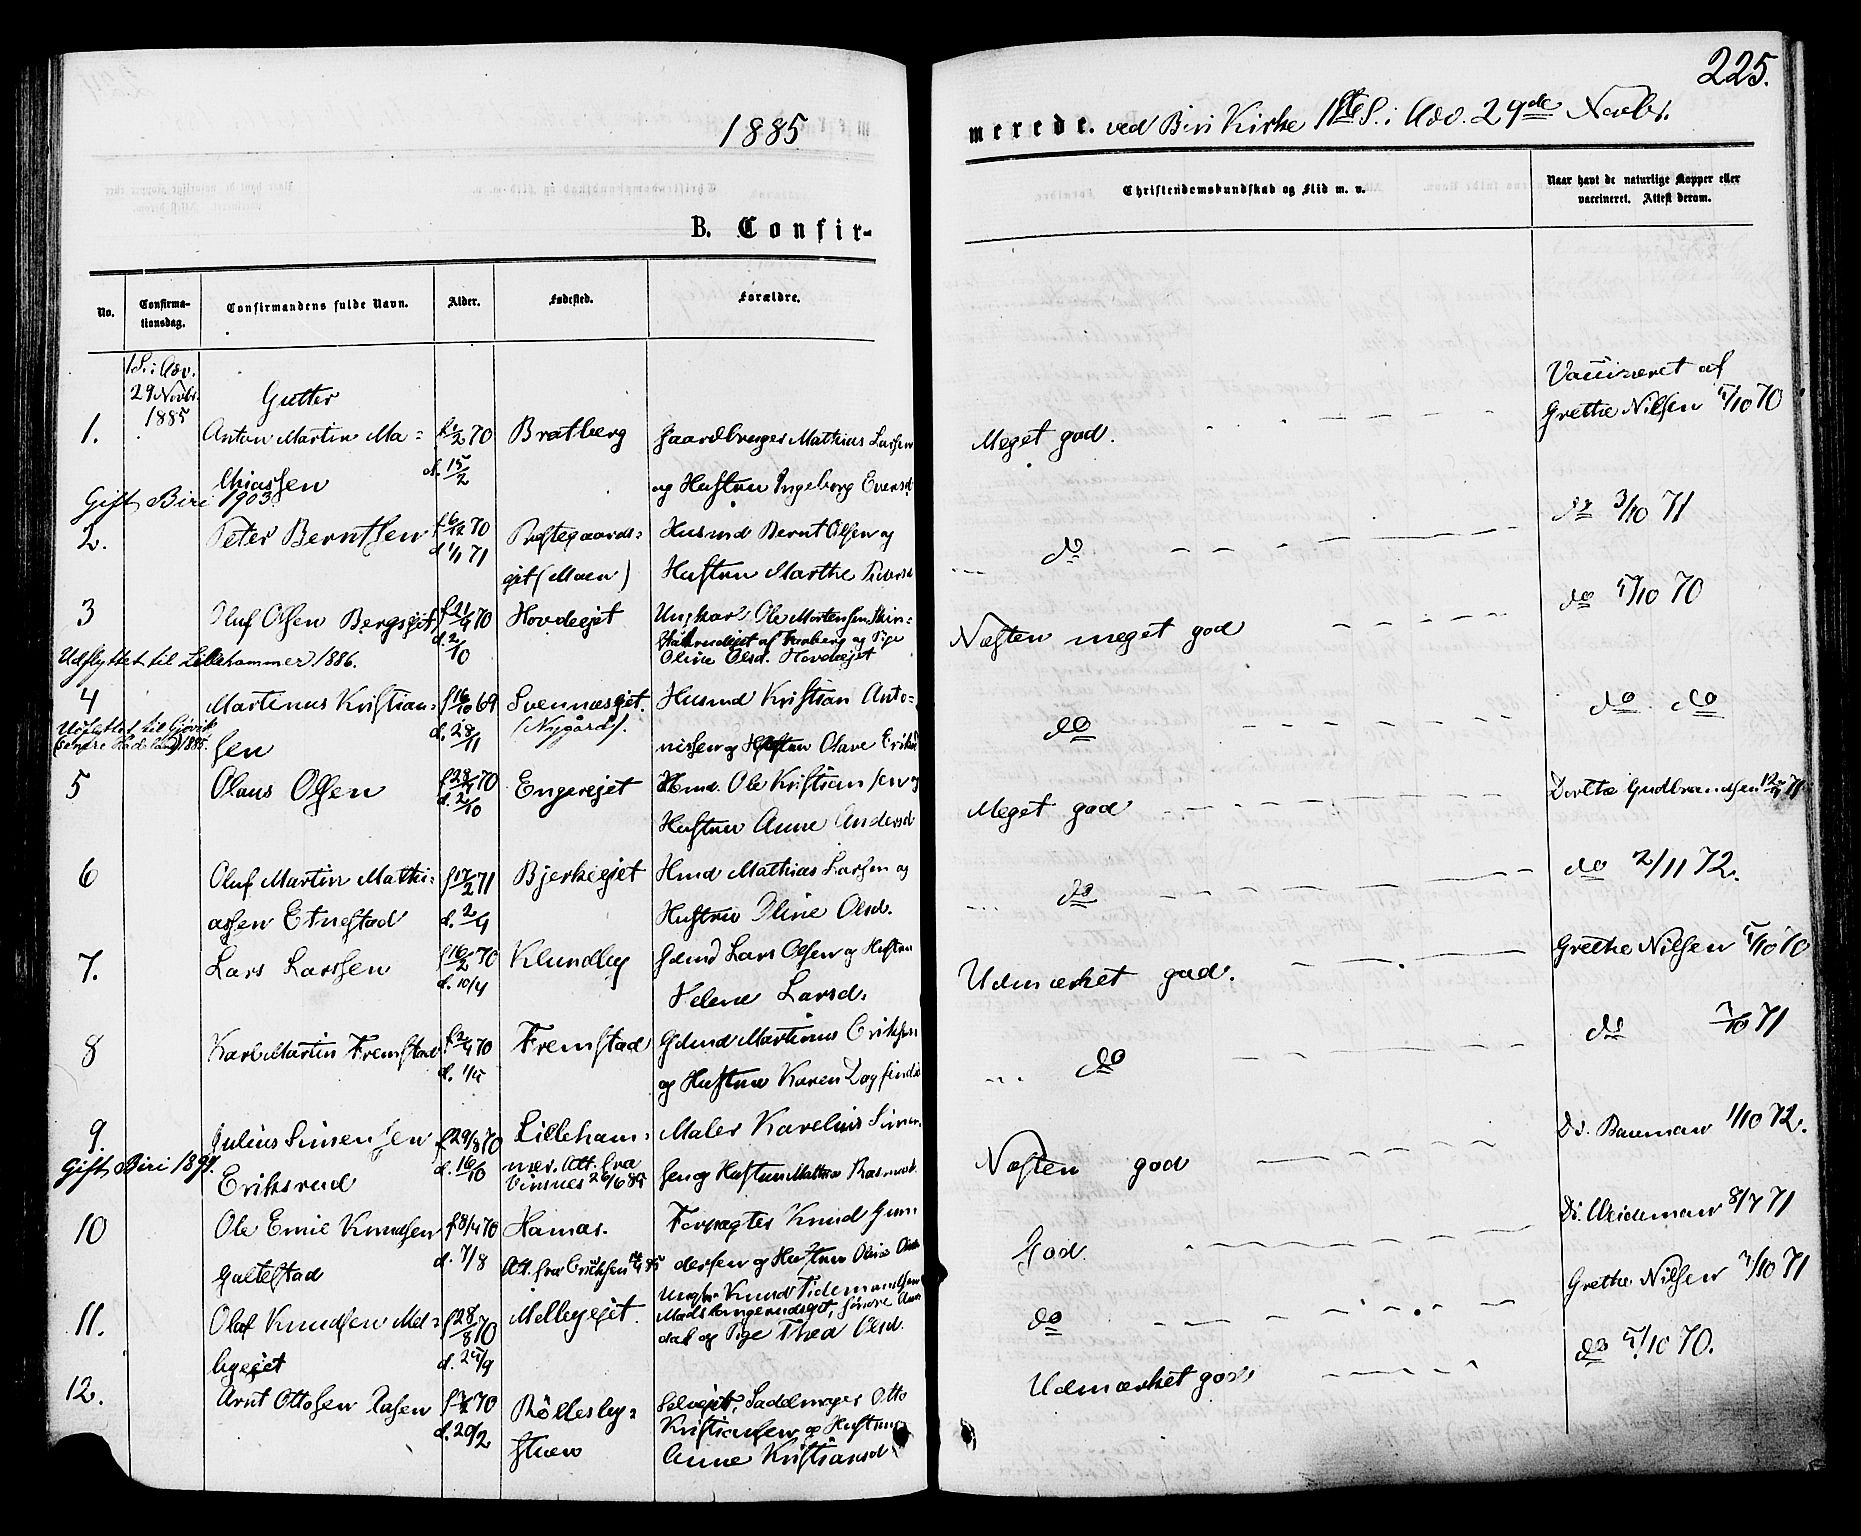 1885
B. Confir-
No.
Confirma-
tionsdag.
Confirmandens fulde Navn.
Alder.
Fødested.
Forældre.
1 S. i Adv.
29 Novbr.
1885
Gutter
1.
Anton Martin Ma-
thiassen
f. 1/2 70
d. 15/2
Bratberg
Gaardbruger Mathias Larsen
og Hustru Ingeborg Evensd
Gift Biri 1903
2.
Peter Berntsen
f. 6/12 70
d. 1/1 71
Prestegaards-
ejet (Moen)
Husmd Bernt Olsen og
Hustru Marthe
3
Oluf Olsen Bergsejet
f. 21/9 70
d. 2/10
Hovdeejet
Ungkarl Ole Mortensen
af Faaberg og Pige
Oline Olsd. Hovdeejet
Udflyttet til Lillehammer 1886.
4
Martinus Kristian-
sen
f. 16/10 69
d. 28/11
Svennæsejet.
(Nygård).
Husmd Kristian Anto-
nissen og Hustru Olave
Udflyttet til Gjøvik
5
Olaus Olsen
f. 28/9 70
d. 2/10
Engerejet
Hmd. Ole Kristiansen og
Hustru Anne Andersd
6
Oluf Martin Mathi-
assen Etnestad
f. 17/2 71
d. 2/4
Bjerkeejet
Hmd Mathias Larsen og
Hustru Oline Olsd.
7.
Lars Larssen
f. 16/2 70
d. 10/4
Klundby
Gdmd Lars Olsen og Hustru
Helene Larsd.
8
Karl Martin Fremstad
f. 2/4 70
d. 1/5
Fremstad
Gdmd Martinus Eriksen
og Hustru Karen Dagfinds
9.
Julius Simensen
Eriksrud
f. 29/8 70
d. 16/10
Lilleham-
mer. Att. fra
Vinsnes 26/6 85
Maler Karelius Simen
sen og Hustru Mathea Rasmusd.
Gift Biri 1897.
10
Ole Emil Knudsen
Galtestad
f. 8/4 70
d. 7/8
Hamar.
Att. fra Eriksen
Forpagter Knud Gun
dersen og Hustru Oline
11.
Olaf Knudsen Mel-
byejet
f. 28/8 70
d. 25/9
Melbyejet.
Ungkr Knud Tidemandsen
søndre Aur
dal og Pige Thea Olsd.
12.
Arnt Ottosen
f. 70
d. 20/2
Röllesby-
stuen
Selvejet, Sadelmager Otto
Kristiansen og Hustru
Anne Kristiansd
225.
merede. ved Biri Kirke 1ste S. i Adv. 29de Novbr.
Christendomskundskab og Flid m. v.
Naar havt de naturlige Kopper eller
vaccineret. Attest derom.
Vaccineret af
Meget god.
Grethe Nilsen 5/10 70
do
do 3/10 71
Næsten meget god
do 5/10 70
do
do do
Meget god
Dorthe Gudbrandsen 12/9 71
do
do 2/11 72.
Udmærket god.
Grethe Nilsen 5/10 70
do
do 7/10 71
Næsten god
Dr. Bauman 1/10 72.
God
Dr. Weideman 8/7 71
do
Grethe Nilsen 7/10 71
Udmærket god.
do 5/10 70.